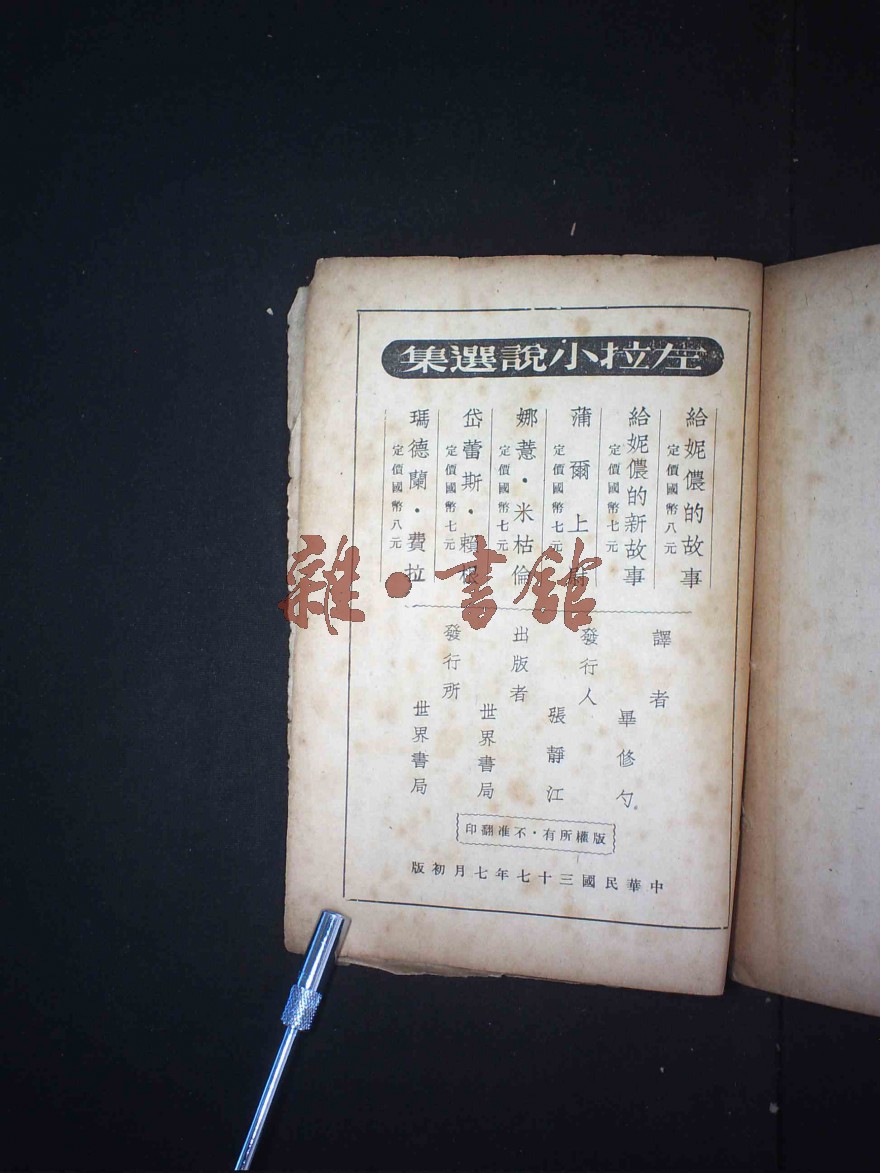 左拉小說選集
給妮儂的故事
定價國幣八元
給妮儂的新故事
定價國幣七元
蒲爾上尉
定價國幣七元
娜薏·米枯倫
定價國幣七元
岱蕾斯·賴根
定價國幣七元
瑪德蘭·費拉
定價國幣八元
譯者
畢修勺
發行人
張靜江
出版者
世界書局
發行所
世界書局
版權所有·不准翻印
中華民國三十七年七月初版
雜·書館